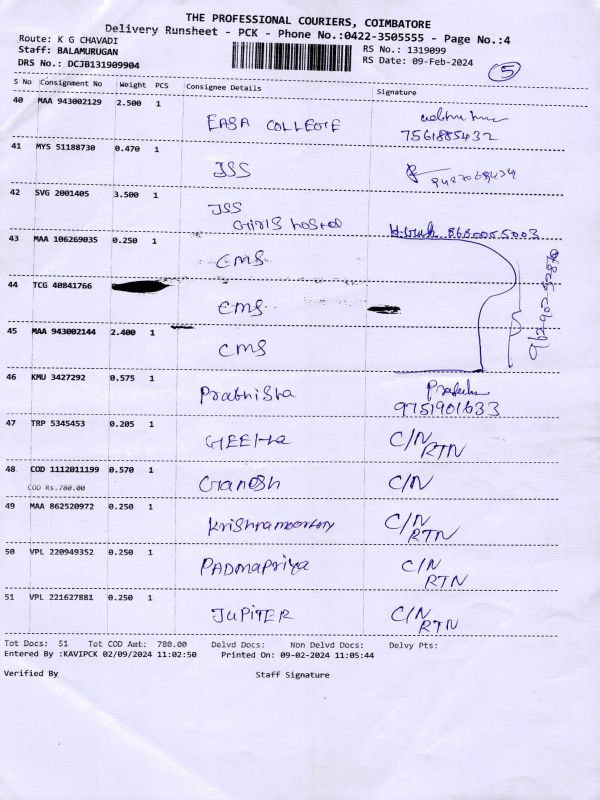 THE PROFESSIONAL COURIERS, COIMBATORE
Delivery Runsheet - PCK - Phone No.:0422-3505555 - Page No.:4
Route: K G CHAVADI
RS No.: 1319099
Staff: BALAMURUGAN
RS Date: 09-Feb-2024
DRS No.: DCJB131909904
5
S No Consignment No Weight PCS Consignee Details Signature
40 MAA 943002129 2.500 1
EASA COLLEGE
7561885432
41 MYS 51188730 0.470 1
JSS
42 SVG 2001405 3.500 1
JSS
Girls hostel
43 MAA 106269035 0.250 1
CMS
44 TCG 40841766 1
CMS
45 MAA 943002144 2.400 1
CMS
46 KMU 3427292 0.575 1
Prathisha
9751901633
47 TRP 5345453 0.205 1
GEETHA C/N
RTN
48 COD 1112011199 0.570 1
COD Rs.780.00
Ganesh C/N
49 MAA 862520972 0.250 1
Krishnamoorthy C/N
RTN
50 VPL 220949352 0.250 1
PADMAPRIYA C/N
RTN
51 VPL 221627881 0.250 1
JUPITER C/N
RTN
Tot Docs: 51 Tot COD Amt: 780.00 Delvd Docs: Non Delvd Docs: Delvy Pts:
Entered By :KAVIPCK 02/09/2024 11:02:50 Printed On: 09-02-2024 11:05:44
Verified By Staff Signature